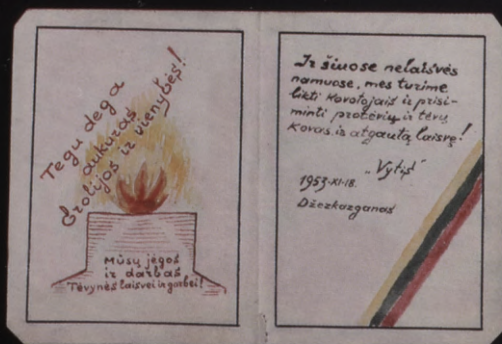 Tegu dega
aukuras
Brolijos ir vienybės!
Mūsų jėgos
ir darbas
Tėvynės laisvei ir garbei!
Ir šiuose nelaisvės
namuose, mes turime
likti kovotojais ir prisi-
minti protėvių ir tėvų
kovas iš atgautą laisvę!
„Vytis"
1953-XI-18.
Džezkazganas